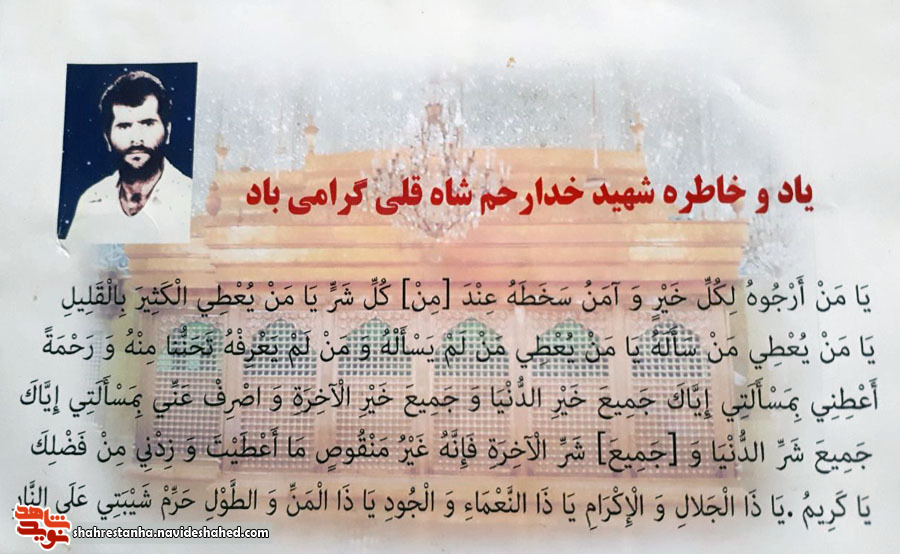 یاد و خاطره شهید خدارحم شاه قلی گرامی باد
يَا مَنْ أَرْجُوهُ لِكُلِّ خَيْرٍ وَ آمَنُ سَخَطَهُ عِنْدَ [مِنْ] كُلِّ شَرٍّ يَا مَنْ يُعْطِي الْكَثِيرَ بِالْقَلِيلِ
يَا مَنْ يُعْطِي مَنْ سَأَلَهُ يَا مَنْ يُعْطِي مَنْ لَمْ يَسْأَلْهُ وَ مَنْ لَمْ يَعْرِفْهُ تَحَنُّنا مِنْهُ وَ رَحْمَةً
أَعْطِنِي بِمَسْأَلَتِي إِيَّاكَ جَمِيعَ خَيْرِ الدُّنْيَا وَ جَمِيعَ خَيْرِ الْآخِرَةِ وَ اصْرِفْ عَنِّي بِمَسْأَلَتِي إِيَّاكَ
جَمِيعَ شَرِّ الدُّنْيَا وَ [جَمِيعَ] شَرِّ الْآخِرَةِ فَإِنَّهُ غَيْرُ مَنْقُوصٍ مَا أَعْطَيْتَ وَ زِدْنِي مِنْ فَضْلِكَ
يَا كَرِيمُ .يَا ذَا الْجَلالِ وَ الْإِكْرَامِ يَا ذَا النَّعْمَاءِ وَ الْجُودِ يَا ذَا الْمَنِّ وَ الطَّوْلِ حَرِّمْ شَيْبَتِي عَلَى النَّارِ
نوید شاهد
shahrestanha.navideshahed.com